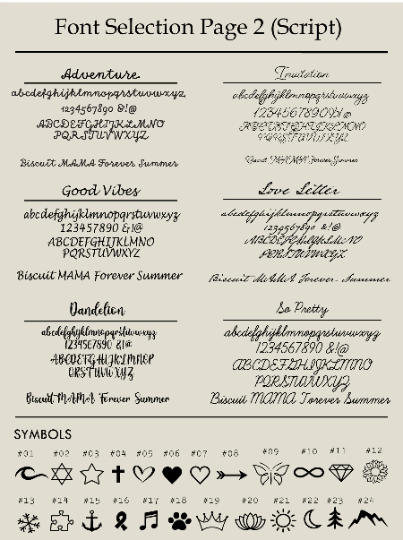 Font Selection Page 2 (Script)
Adventure
abcdefghijklmnopqrstuvwxyz
1234567890 &!@
ABCDEFGHIJKLMNO
PQRSTUVWXYZ
Biscuit MAMA Forever Summer
Invitation
abcdefghijklmnopqrstuvwxyz
1234567890&!@
ABCDEFGHIJKLMNO
PQRSTUVWXYZ
Biscuit MAMA Forever Summer
Good Vibes
abcdefghijklmnopqrstuvwxyz
1234567890 &!@
ABCDEFGHIJKLMNO
PQRSTUVWXYZ
Biscuit MAMA Forever Summer
Love Letter
abcdefghijklmnopqrstuvwxyz
1234567890 &!@
ABCDEFGHIJKLMNO
PQRSTUVWXYZ
Biscuit MAMA Forever Summer
Dandelion
abcdefghijklmnopqrstuvwxyz
1234567890 &!@
ABCDEFGHIJKLMNOP
QRSTUVWXYZ
Biscuit MAMA Forever Summer
So Pretty
abcdefghijklmnopqrstuvwxyz
1234567890 &!@
ABCDEFGHIJKLMNO
PQRSTUVWXYZ
Biscuit MAMA Forever Summer
SYMBOLS
#01 #02 #03 #04 #05 #06 #07 #08 #09 #10 #11 #12
#13 #14 #15 #16 #17 #18 #19 #20 #21 #22 #23 #24